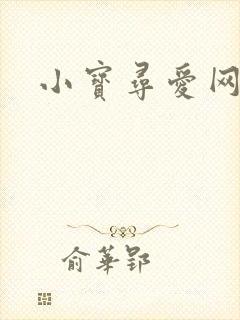 小寶尋愛网
俞華郢